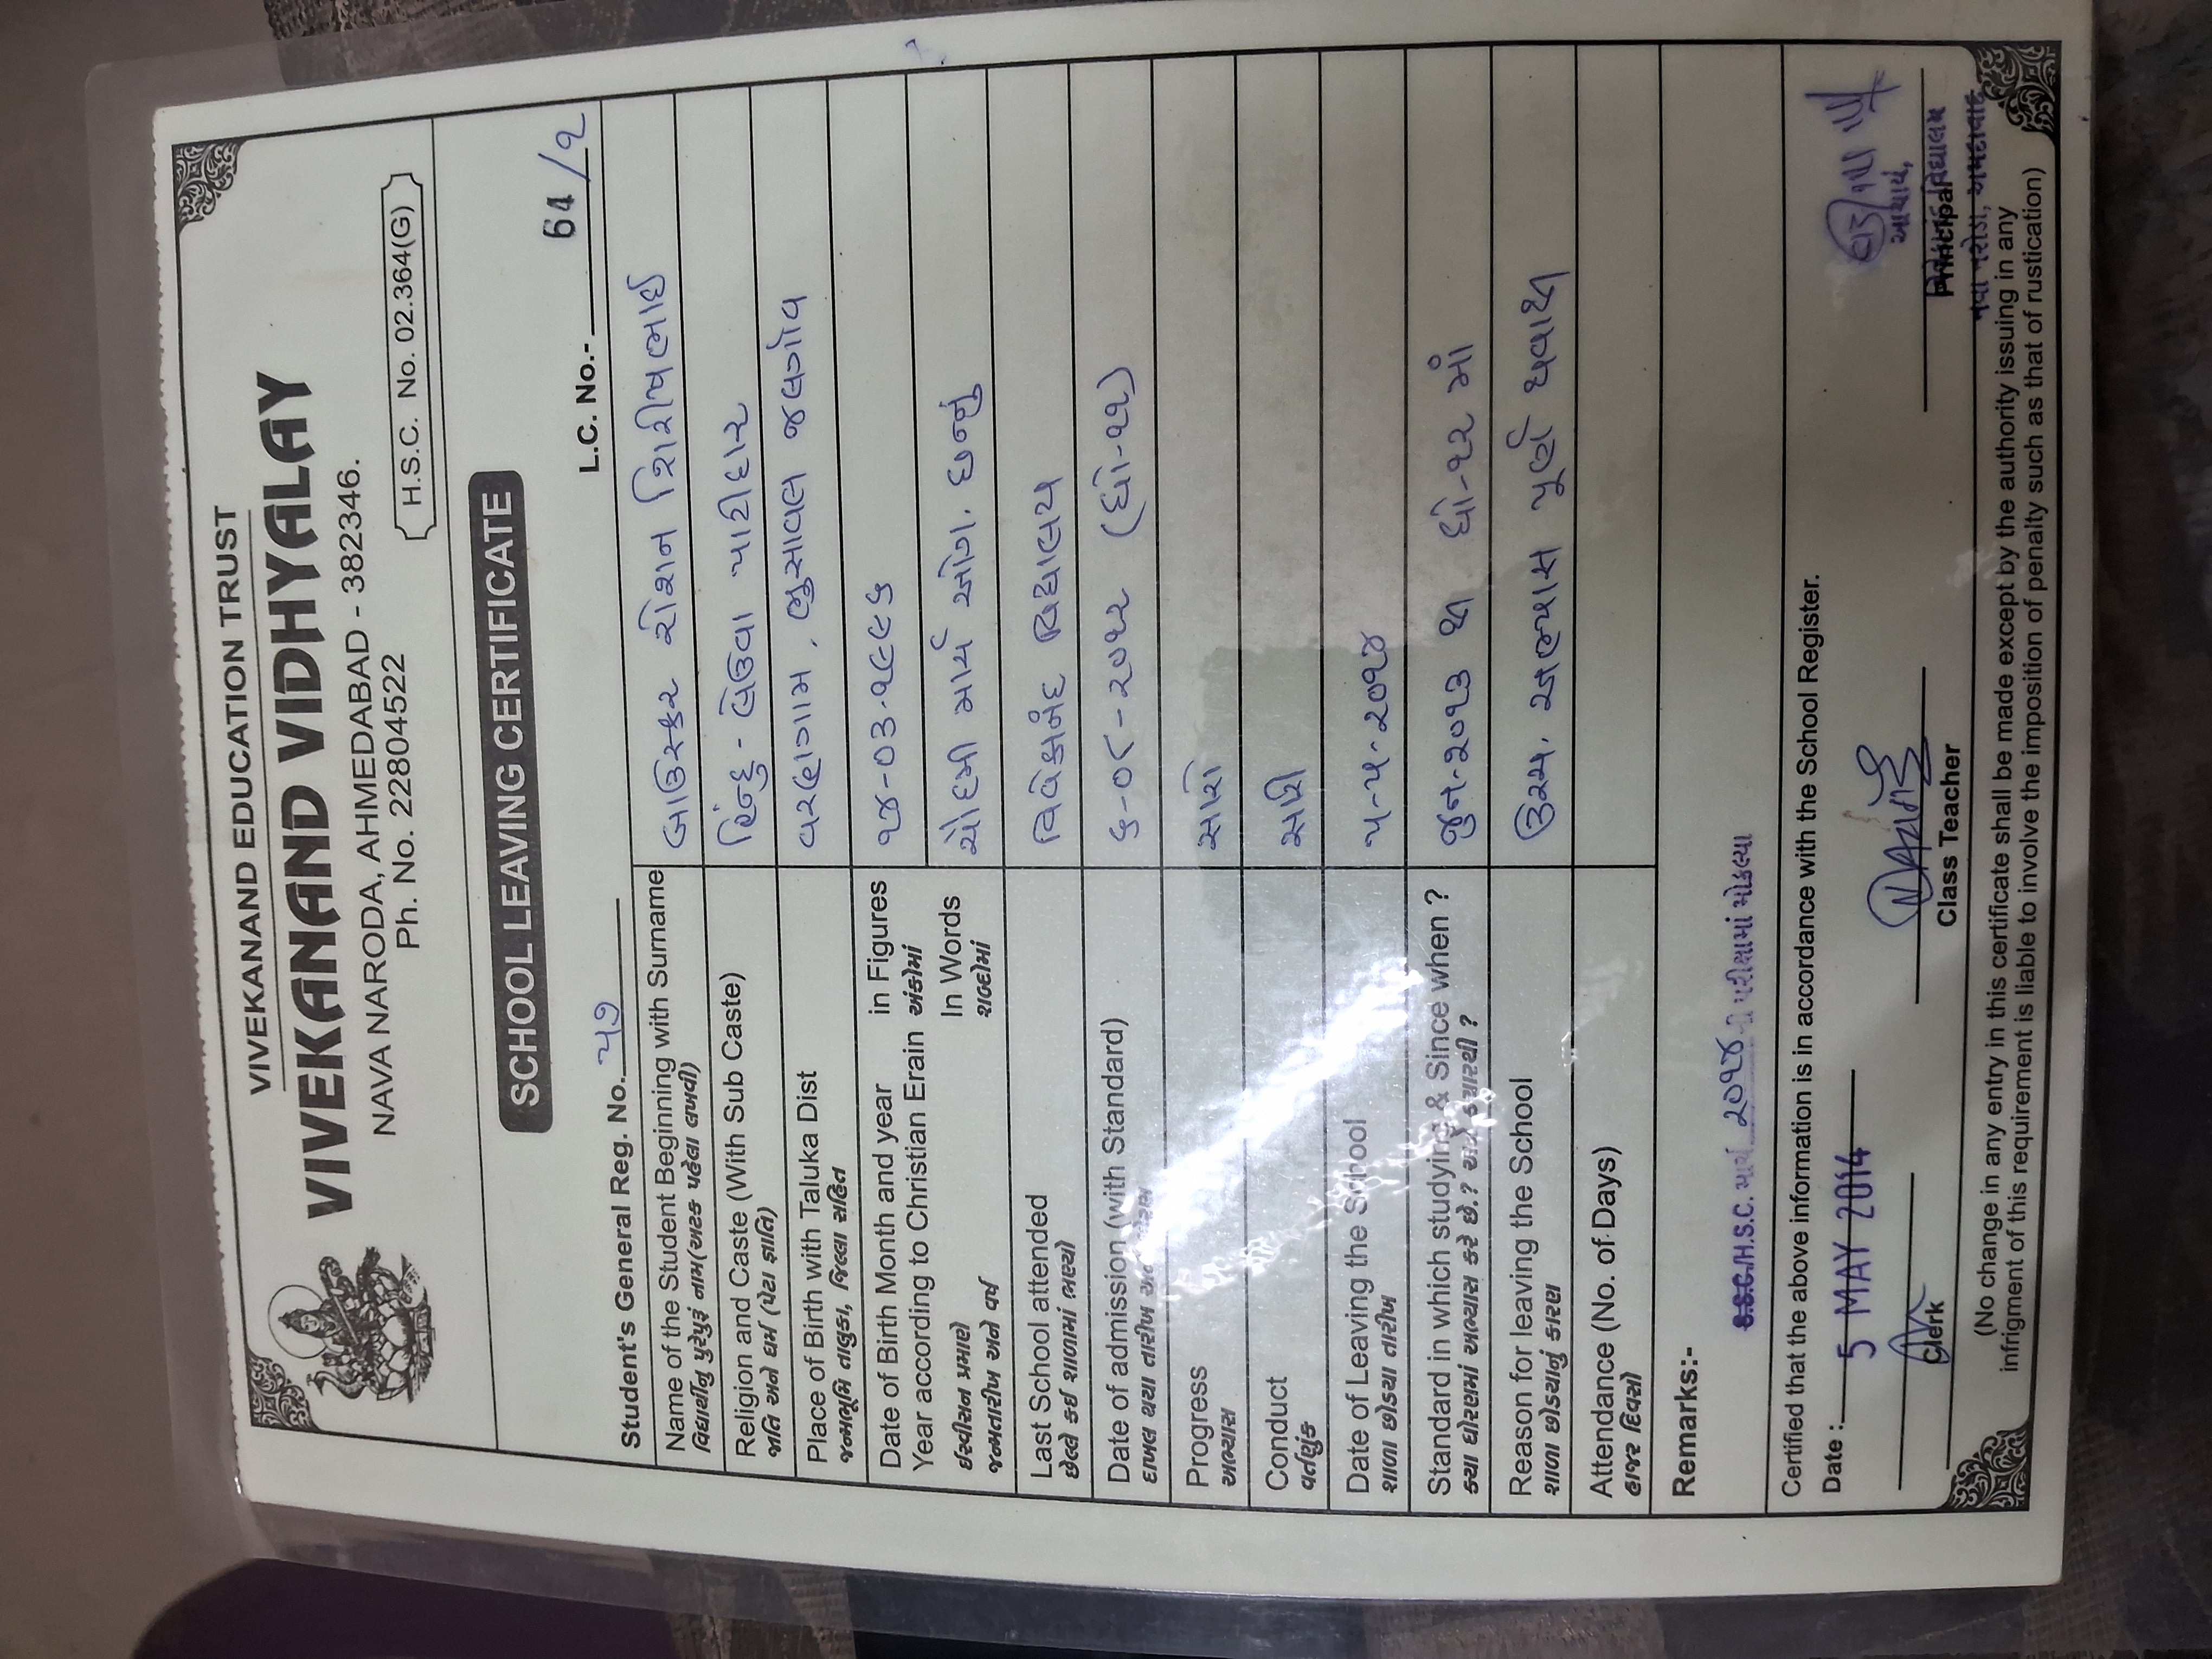 VIVEKANAND EDUCATION TRUST
VIVEKANAND VIDHYALAY
NAVA NARODA, AHMEDABAD - 382346.
Ph. No. 22804522
H.S.C. No. 02.364(G)
SCHOOL LEAVING CERTIFICATE
L.C. No.- 64 / ૧
Student's General Reg. No. ૫૭
Name of the Student Beginning with Surname
વિદ્યાર્થીનું પુરેપુરૂં નામ(અટક પહેલા લખવી)
બાઉસ્કર રોશન શિરીષભાઈ
Religion and Caste (With Sub Caste)
જાતિ અને ધર્મ (પેટા જ્ઞાતિ)
હિન્દુ - લેઉવા પાટીદાર
Place of Birth with Taluka Dist
જન્મભૂમિ તાલુકા, જિલ્લા સહિત
વરણગામ, ભુસાવલ જલગાંવ
Date of Birth Month and year in Figures
Year according to Christian Erain અંકોમાં
૧૪-૦૩-૧૯૯૬
ઈસ્વીસન પ્રમાણે In Words
જન્મતારીખ અને વર્ષ શબ્દોમાં
ચૌદમી માર્ચ ઓગ. છન્નું
Last School attended
છેલ્લે કઈ શાળામાં ભણ્યો
વિવેકાનંદ વિદ્યાલય
Date of admission (with Standard)
દાખલ થયા તારીખ
૬-૦૮-૨૦૧૨ (ધો-૧૧)
Progress
અભ્યાસ
સારો
Conduct
વર્તણુંક
સારી
Date of Leaving the School
શાળા છોડયા તારીખ
૫-૫-૨૦૧૪
Standard in which studying & Since when ?
કયા ધોરણમાં અભ્યાસ કરે છે.? અને કયારથી ?
જુન-૨૦૧૩ થી ધો-૧૨ માં
Reason for leaving the School
શાળા છોડયાનું કારણ
ઉચ્ચ. અભ્યાસ પૂર્ણ થવાથી
Attendance (No. of Days)
હાજર દિવસો
Remarks:-
S.S.C./H.S.C. માર્ચ ૨૦૧૪ની પરીક્ષામાં મોકલ્યા
Certified that the above information is in accordance with the School Register.
Date : 5 MAY 2014
આચાર્ય,
Clerk
Class Teacher
Principal
વિદ્યાલય
નવા નરોડા, અમદાવાદ
(No change in any entry in this certificate shall be made except by the authority issuing in any
infrigment of this requirement is liable to involve the imposition of penalty such as that of rustication)